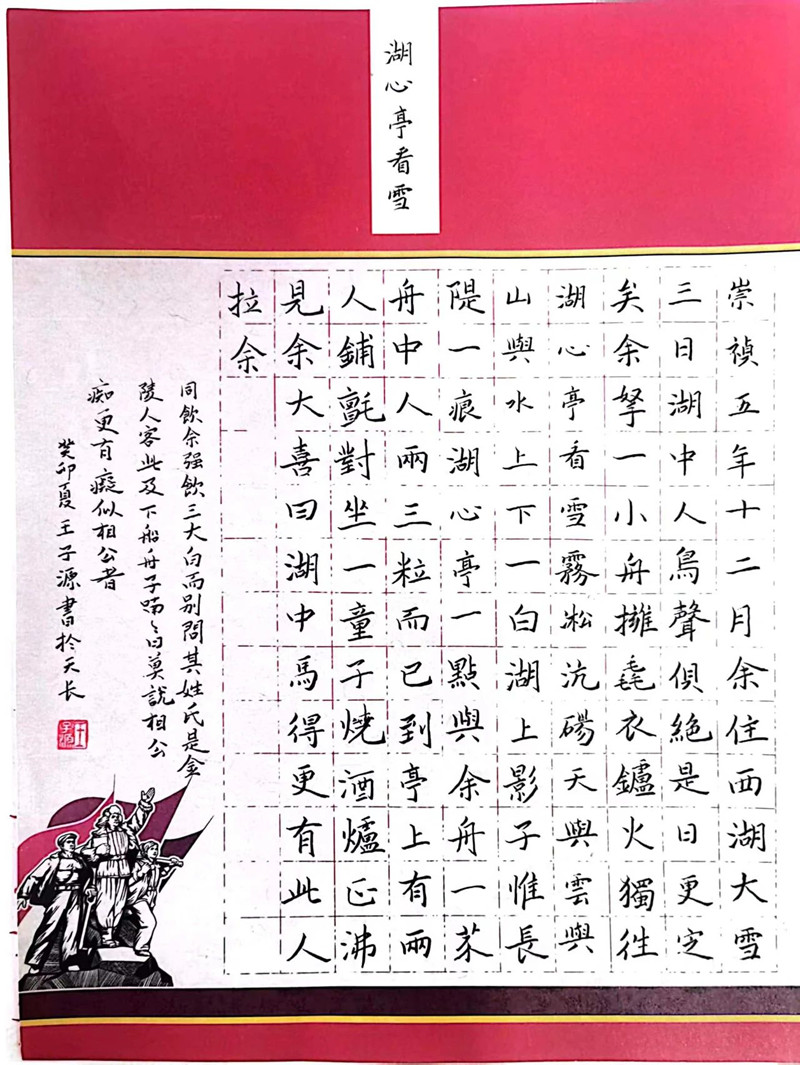 湖心亭看雪
崇禎五年十二月余住西湖大雪
三日湖中人鳥聲俱絶是日更定
矣余拏一小舟擁毳衣鑪火獨往
湖心亭看雪霧淞沆碭天與雲與
山與水上下一白湖上影子惟長
隄一痕湖心亭一點與余舟一芥
舟中人兩三粒而已到亭上有兩
人鋪氈對坐一童子燒酒爐正沸
見余大喜曰湖中焉得更有此人
拉余
同飲余强飲三大白而别問其姓氏是金
陵人客此及下船舟子喃々曰莫説相公
痴更有癡似相公者
癸卯夏王子源書於天长
王子源